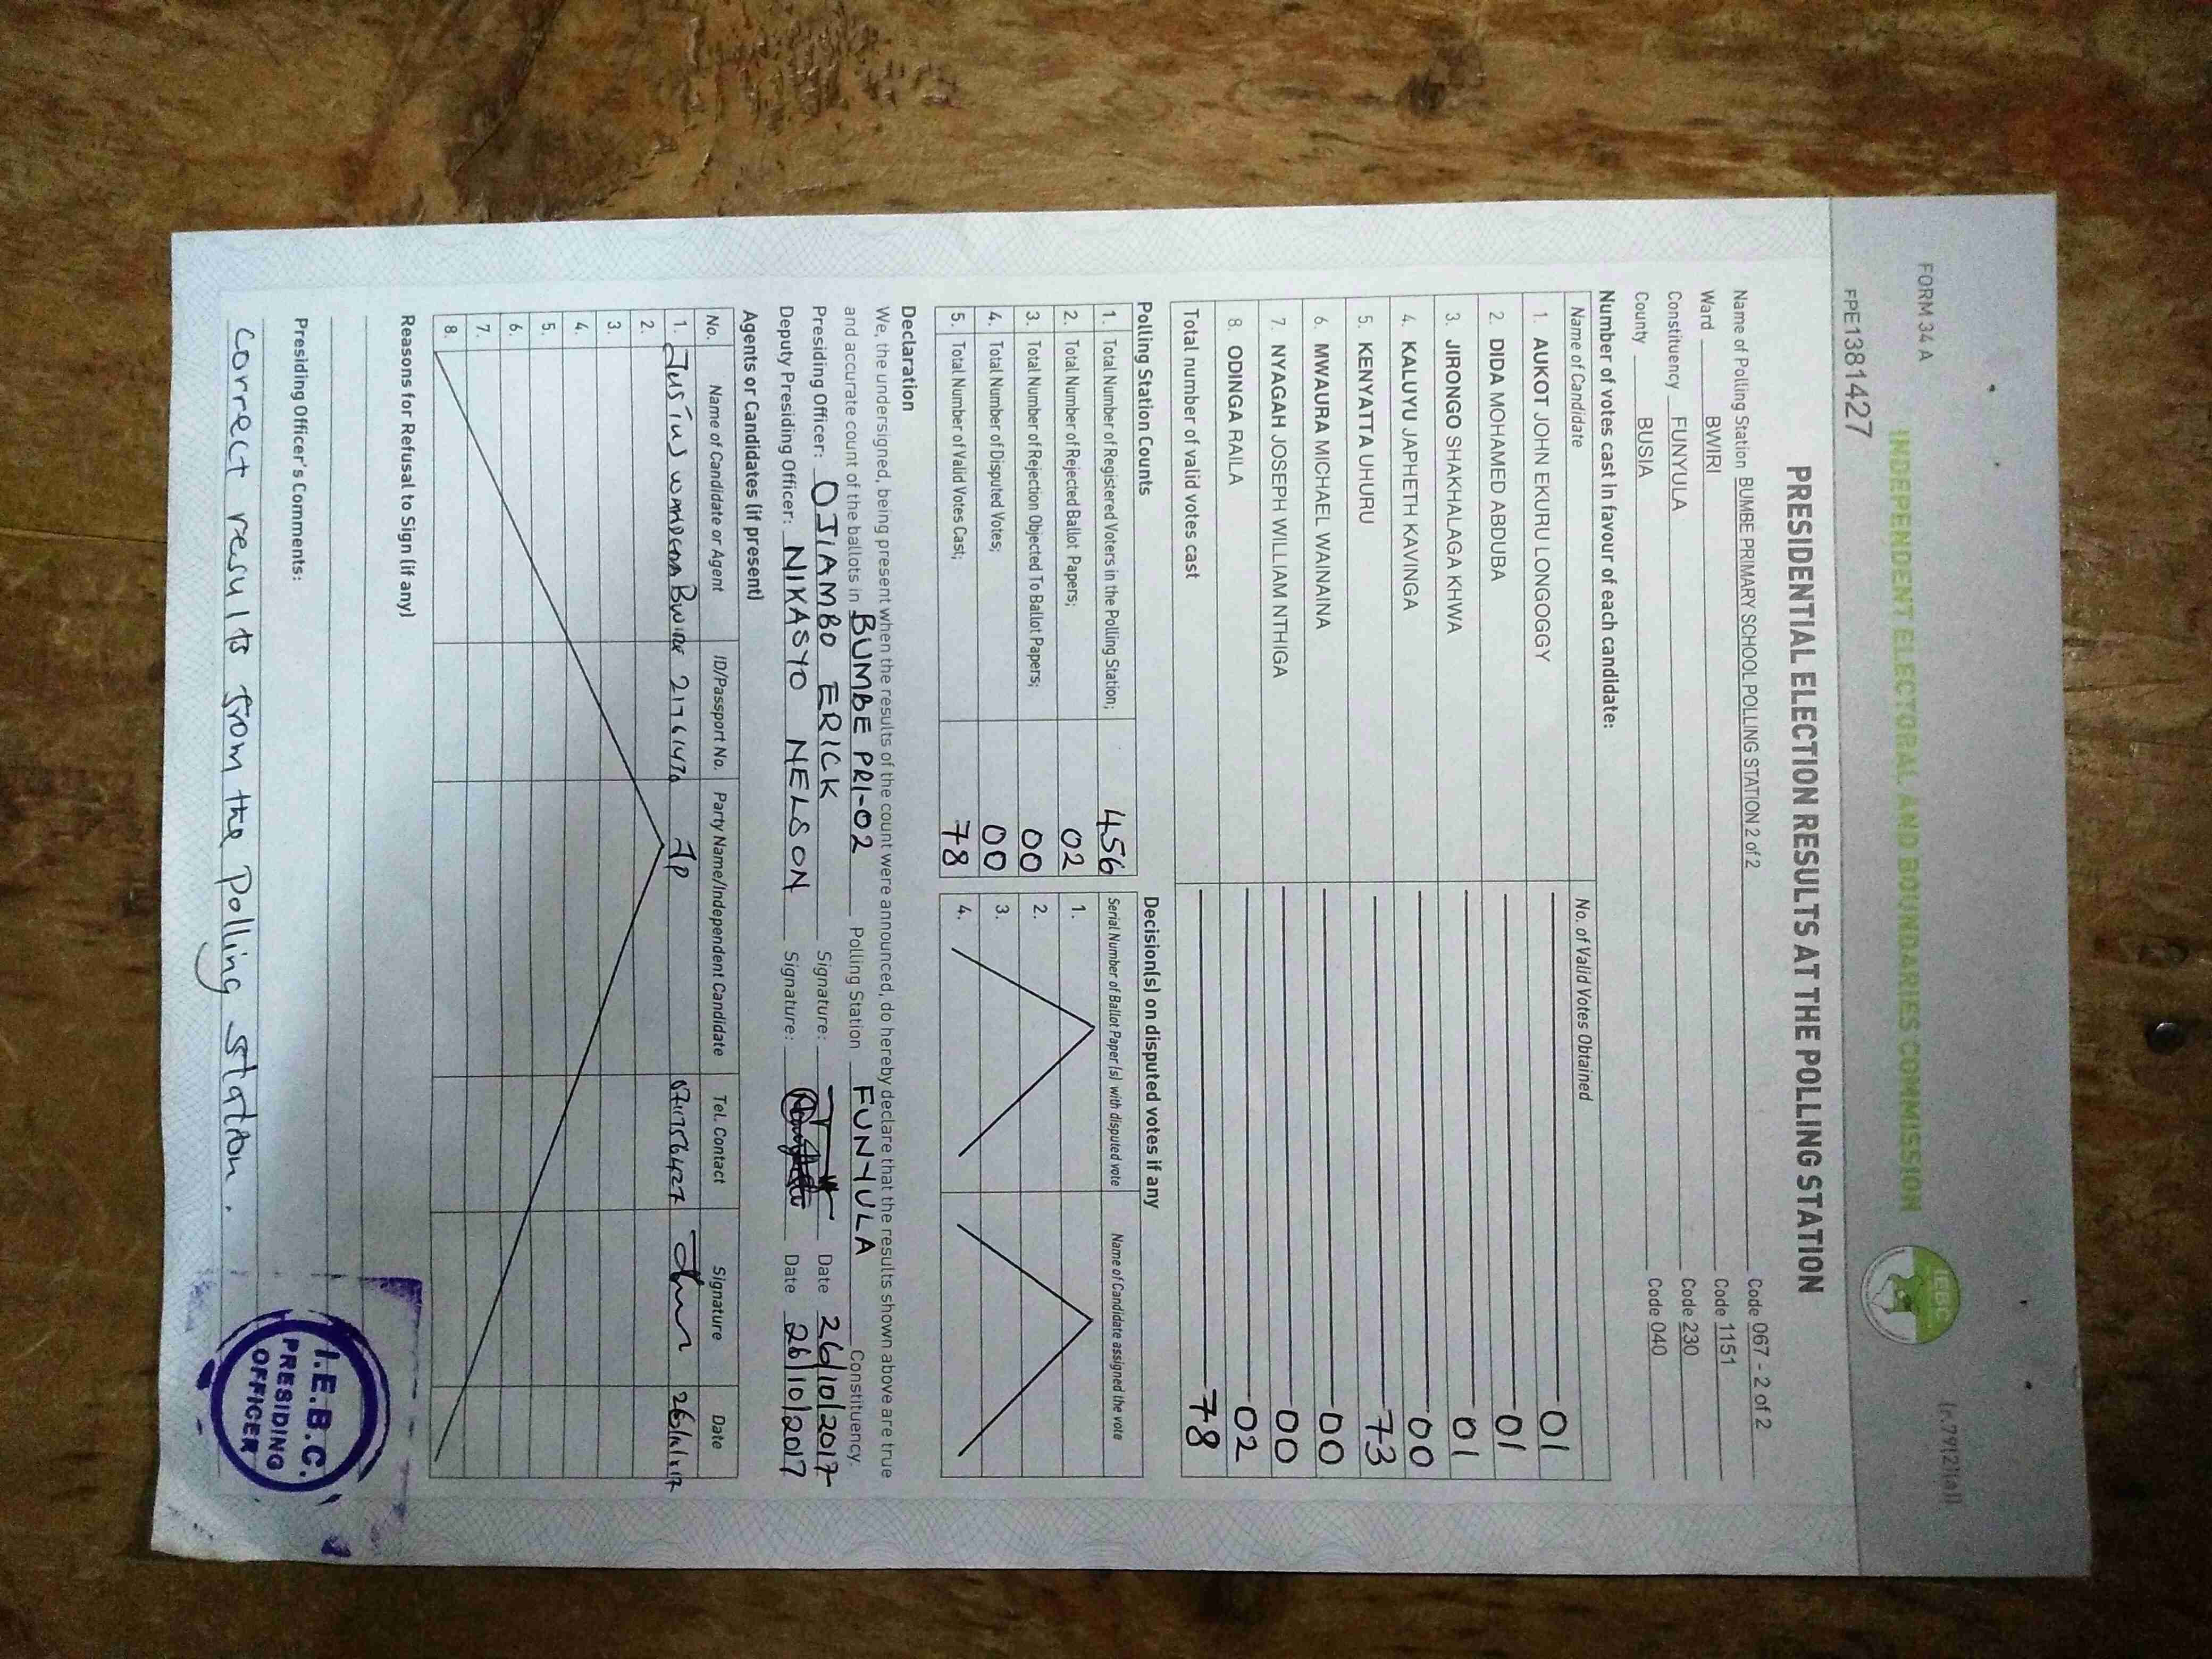 FORM 34 A
(r.79(2)(a))
INDEPENDENT ELECTORAL AND BOUNDARIES COMMISSION
IEBC
FPE1381427
PRESIDENTIAL ELECTION RESULTS AT THE POLLING STATION
Name of Polling Station BUMBE PRIMARY SCHOOL POLLING STATION 2 of 2 Code 067 - 2 of 2
Ward BWIRI Code 1151
Constituency FUNYULA Code 230
County BUSIA Code 040
Number of votes cast in favour of each candidate:
Name of Candidate No. of Valid Votes Obtained
1. AUKOT JOHN EKURU LONGOGGY 01
2. DIDA MOHAMED ABDUBA 01
3. JIRONGO SHAKHALAGA KHWA 01
4. KALUYU JAPHETH KAVINGA 00
5. KENYATTA UHURU 73
6. MWAURA MICHAEL WAINAINA 00
7. NYAGAH JOSEPH WILLIAM NTHIGA 00
8. ODINGA RAILA 02
Total number of valid votes cast 78
Polling Station Counts Decision(s) on disputed votes if any
1. Total Number of Registered Voters in the Polling Station; 456 Serial Number of Ballot Paper (s) with disputed vote Name of Candidate assigned the vote
2. Total Number of Rejected Ballot Papers; 02 1.
3. Total Number of Rejection Objected To Ballot Papers; 00 2.
4. Total Number of Disputed Votes; 00 3.
5. Total Number of Valid Votes Cast; 78 4.
Declaration
We, the undersigned, being present when the results of the count were announced, do hereby declare that the results shown above are true
and accurate count of the ballots in BUMBE PRI-02 Polling Station FUNYULA Constituency.
Presiding Officer: OJIAMBO ERICK Signature: Date 26/10/2017
Deputy Presiding Officer: NIKASYO NELSON Signature: Date 26/10/2017
Agents or Candidates (if present)
No. Name of Candidate or Agent ID/Passport No. Party Name/Independent Candidate Tel. Contact Signature Date
1. JP
2.
3.
4.
5.
6.
7.
8.
Reasons for Refusal to Sign (if any)
Presiding Officer's Comments:
Correct results from the Polling station.
I.E.B.C.
PRESIDING
OFFICER